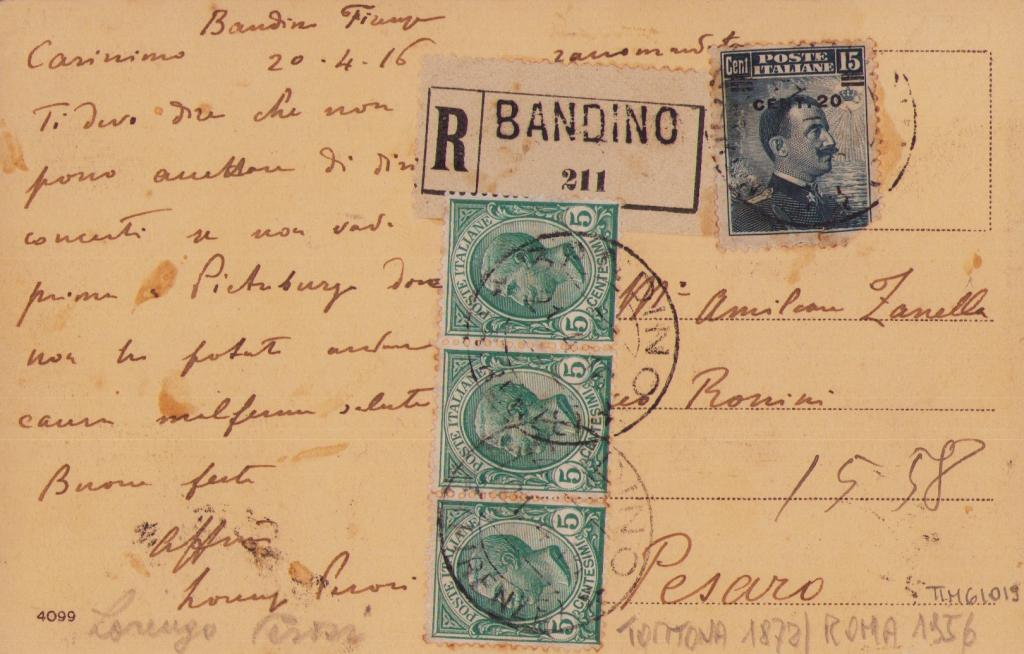 Bandino Firenze
Carissimo 20-4-16 raccomandata
Ti devo dire che non
posso accettare di diri
concerti se non vado
prima a Pietroburgo dove
non ho potuto andare
causa malferma salute
Buone feste
Aff.mo
Lorenzo Perosi
R BANDINO
211
Cent POSTE ITALIANE 15
CENT. 20
POSTE ITALIANE 5 CENTESIMI 5
POSTE ITALIANE 5 CENTESIMI 5
POSTE ITALIANE 5 CENTESIMI 5
BANDINO
FIRENZE
Amilcare Zanella
Rossini
1558
Pesaro
4099
Lorenzo Perosi
TORTONA 1872/ ROMA 1956